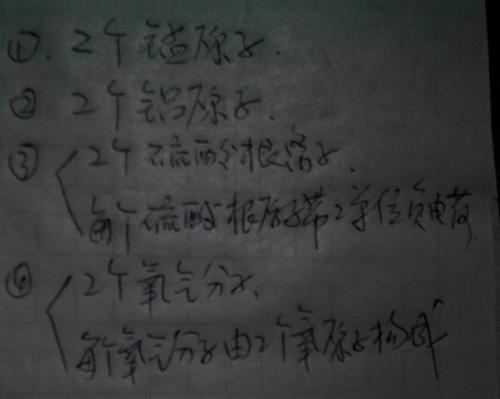 ①. 2个锰原子.
② 2个铝原子.
③ 2个硫酸根离子.
每个硫酸根离子带2单位负电荷
④ 2个氧气分子.
每个氧气分子由2个氧原子构成